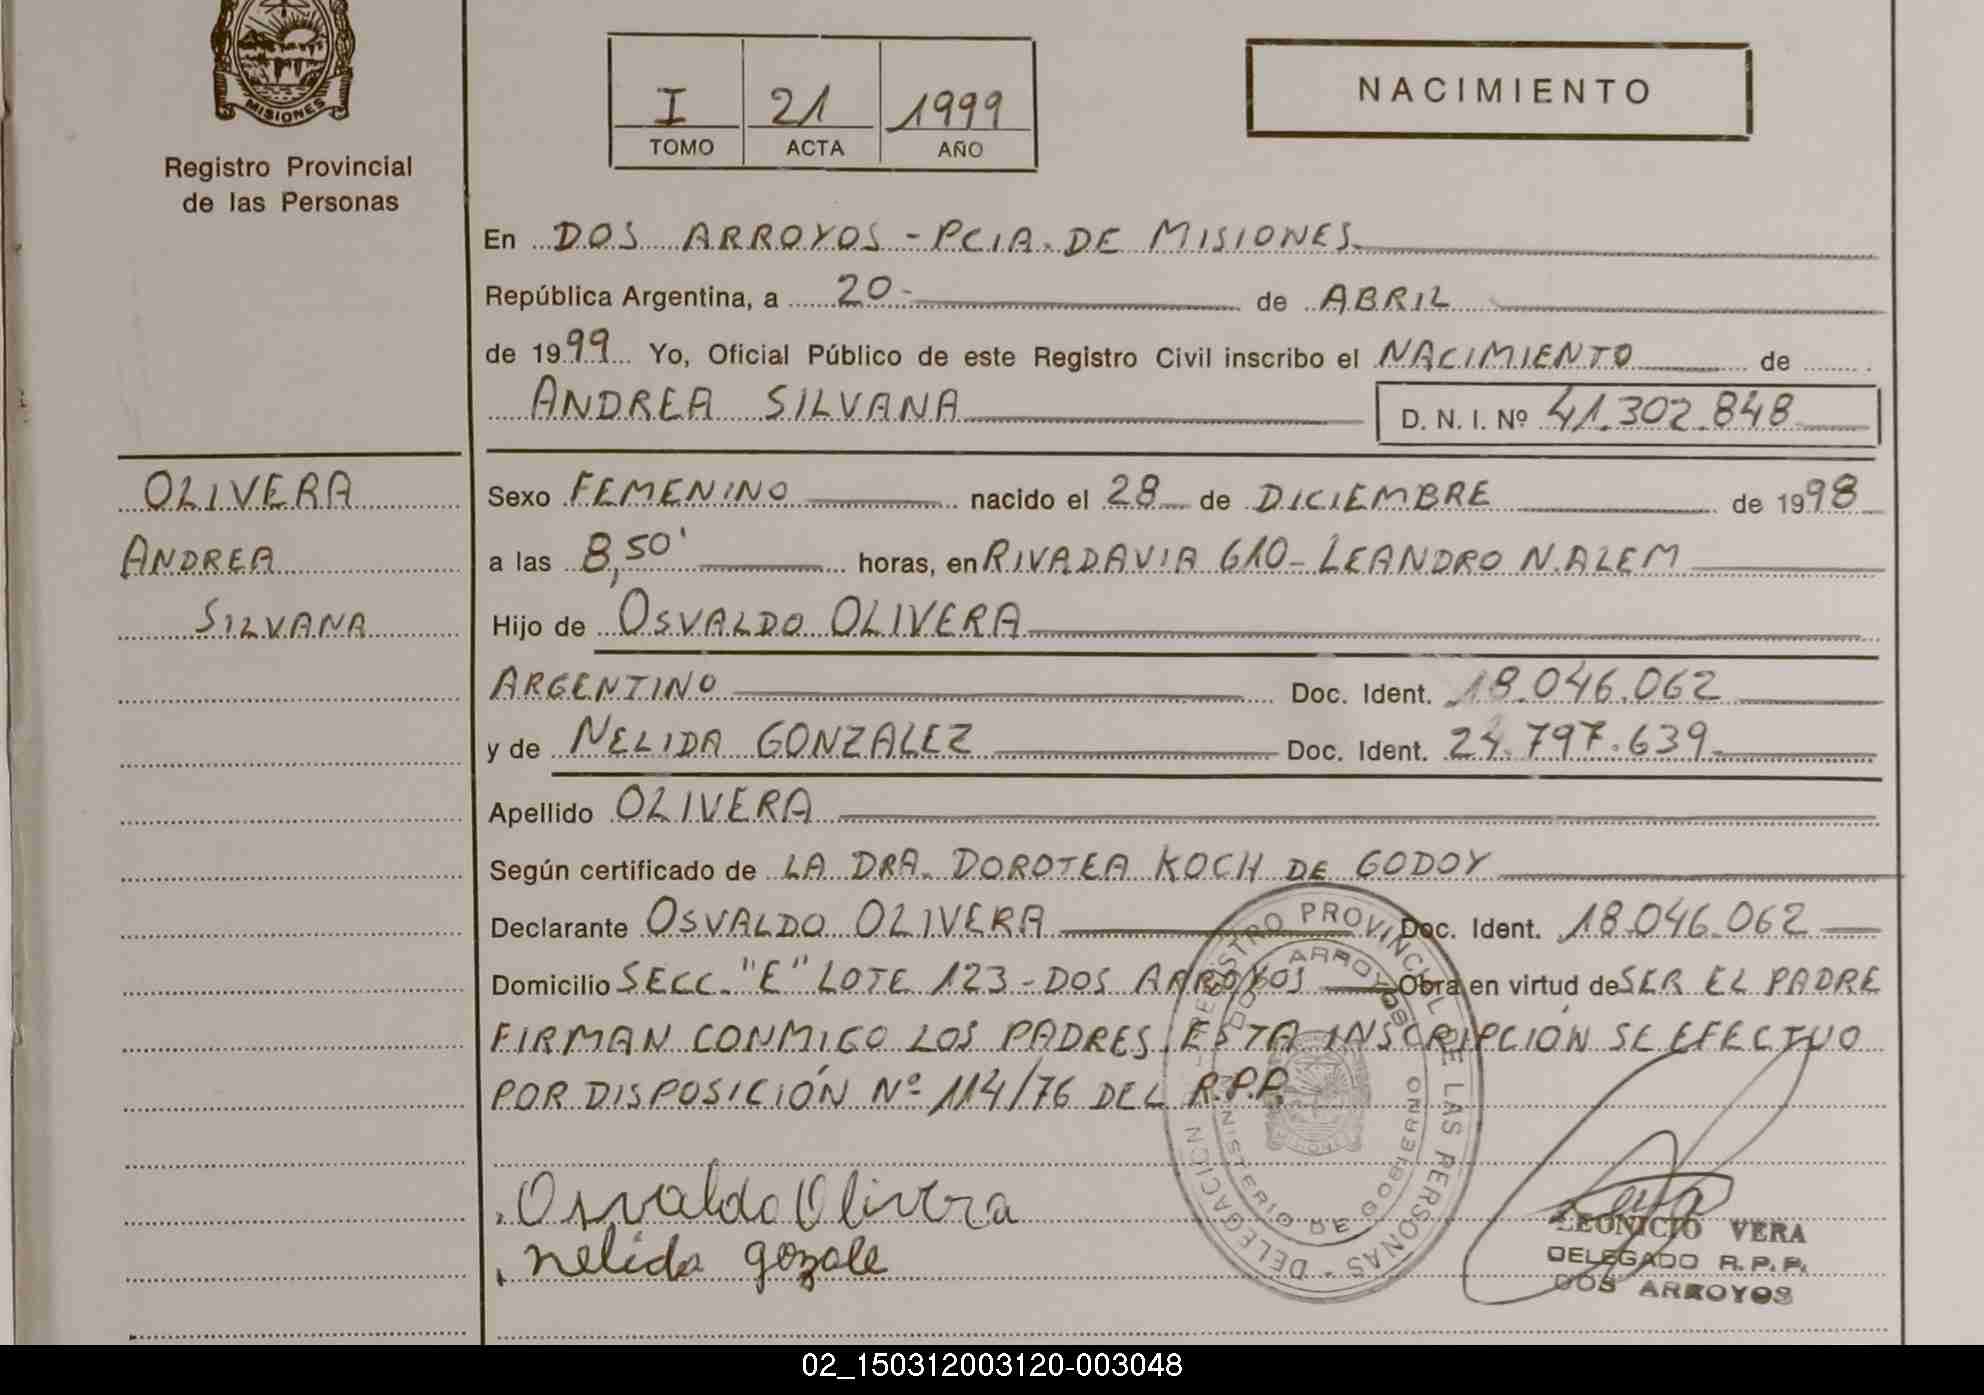 MISIONES
Registro Provincial
de las Personas
I 21 1999
TOMO ACTA AÑO
NACIMIENTO
En DOS ARROYOS - PCIA. DE MISIONES
República Argentina, a 20 - de ABRIL
de 1999 Yo, Oficial Público de este Registro Civil inscribo el NACIMIENTO de
ANDREA SILVANA D. N. I. Nº 41.302.848
OLIVERA
ANDREA
SILVANA
Sexo FEMENINO nacido el 28 de DICIEMBRE de 1998
a las 8,50' horas, en RIVADAVIA 610 - LEANDRO N. ALEM
Hijo de OSVALDO OLIVERA
ARGENTINO Doc. Ident. 18.046.062
y de NELIDA GONZALEZ Doc. Ident. 24.797.639
Apellido OLIVERA
Según certificado de LA DRA. DOROTEA KOCH DE GODOY
Declarante OSVALDO OLIVERA Doc. Ident. 18.046.062
Domicilio SECC. "E" LOTE 123 - DOS ARROYOS Obra en virtud de SER EL PADRE
FIRMAN CONMIGO LOS PADRES. ESTA INSCRIPCIÓN SE EFECTUO
POR DISPOSICIÓN Nº 114/76 DEL R.P.P.
REGISTRO PROVINCIAL DE LAS PERSONAS - DELEGACION -
DOS ARROYOS
MINISTERIO DE GOBIERNO
Osvaldo Olivera
nelida gozale
LEONICIO VERA
DELEGADO R. P. P.
DOS ARROYOS
02_150312003120-003048